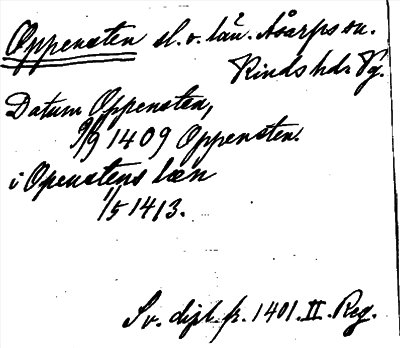 Oppensten sl. o. län. Åsarps sn.
Kinds hd. Vg.
Datum Oppensten,
9/9 1409 Oppensten.
i Openstens læn
1/5 1413.
Sv. dipl. fr. 1401. II. Reg.